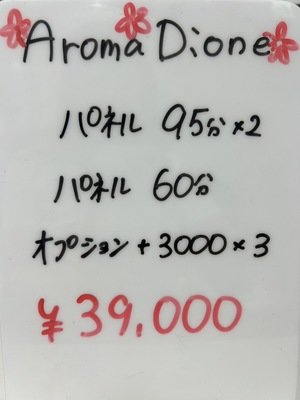 Aroma Dione
パネル 95分×2
パネル 60分
オプション+3000×3
¥39,000